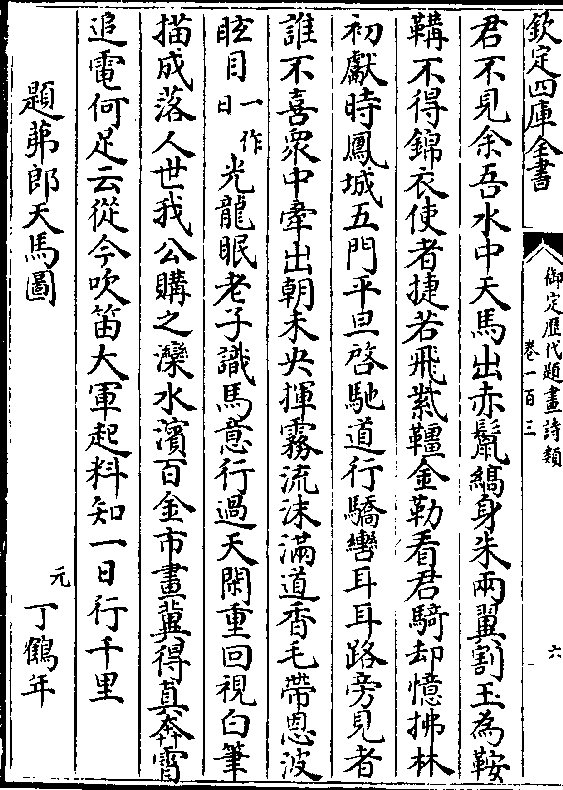 欽定四庫全書
御定歷代題畫詩類
卷一百三
六
君不見余吾水中天馬出赤鬛縞身朱兩翼割玉為鞍
鞲不得錦衣使者捷若飛紫韁金勒看君騎却憶拂林
初獻時鳳城五門平旦啓馳道行驕轡耳耳路旁見者
誰不喜衆中牽出朝未央揮霧流沫滿道香毛帶恩波
眩目一作日光龍眠老子識馬意行過天閑重回視白筆
描成落人世我公購之灤水濱百金市畫冀得真奔霄
追電何足云從今吹笛大軍起料知一日行千里
題茀郎天馬圖
元 丁鶴年